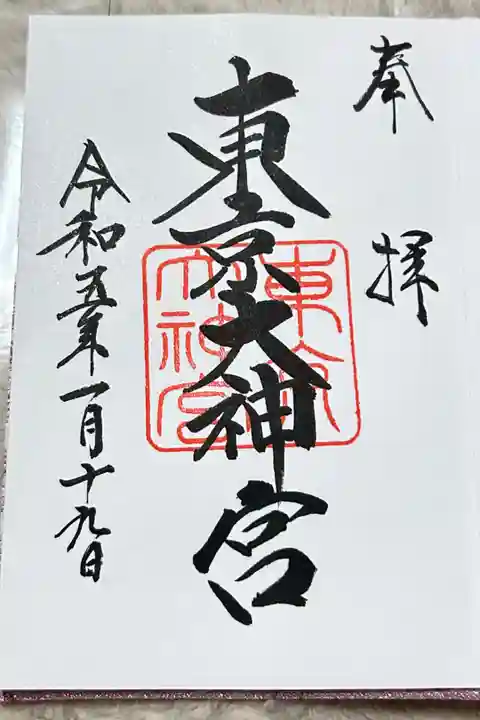 奉拝
東京大神宮
東京大神宮
令和五年一月十九日